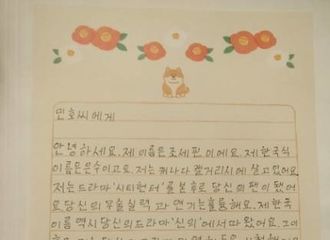 민호씨에게
안녕하세요. 제 이름은 조세핀이에요. 제 한국식
이름은 은수이고요. 저는 캐나다 캘거리시에 살고있어요.
저는 드라마 '시티헌터'를 본후로 당신의 팬이 됐어
요. 당신의 무술실력과 연기는 훌륭해요. 제 한국
이름 역시 당신의 드라마 '신의'에서 따 왔어요. 그